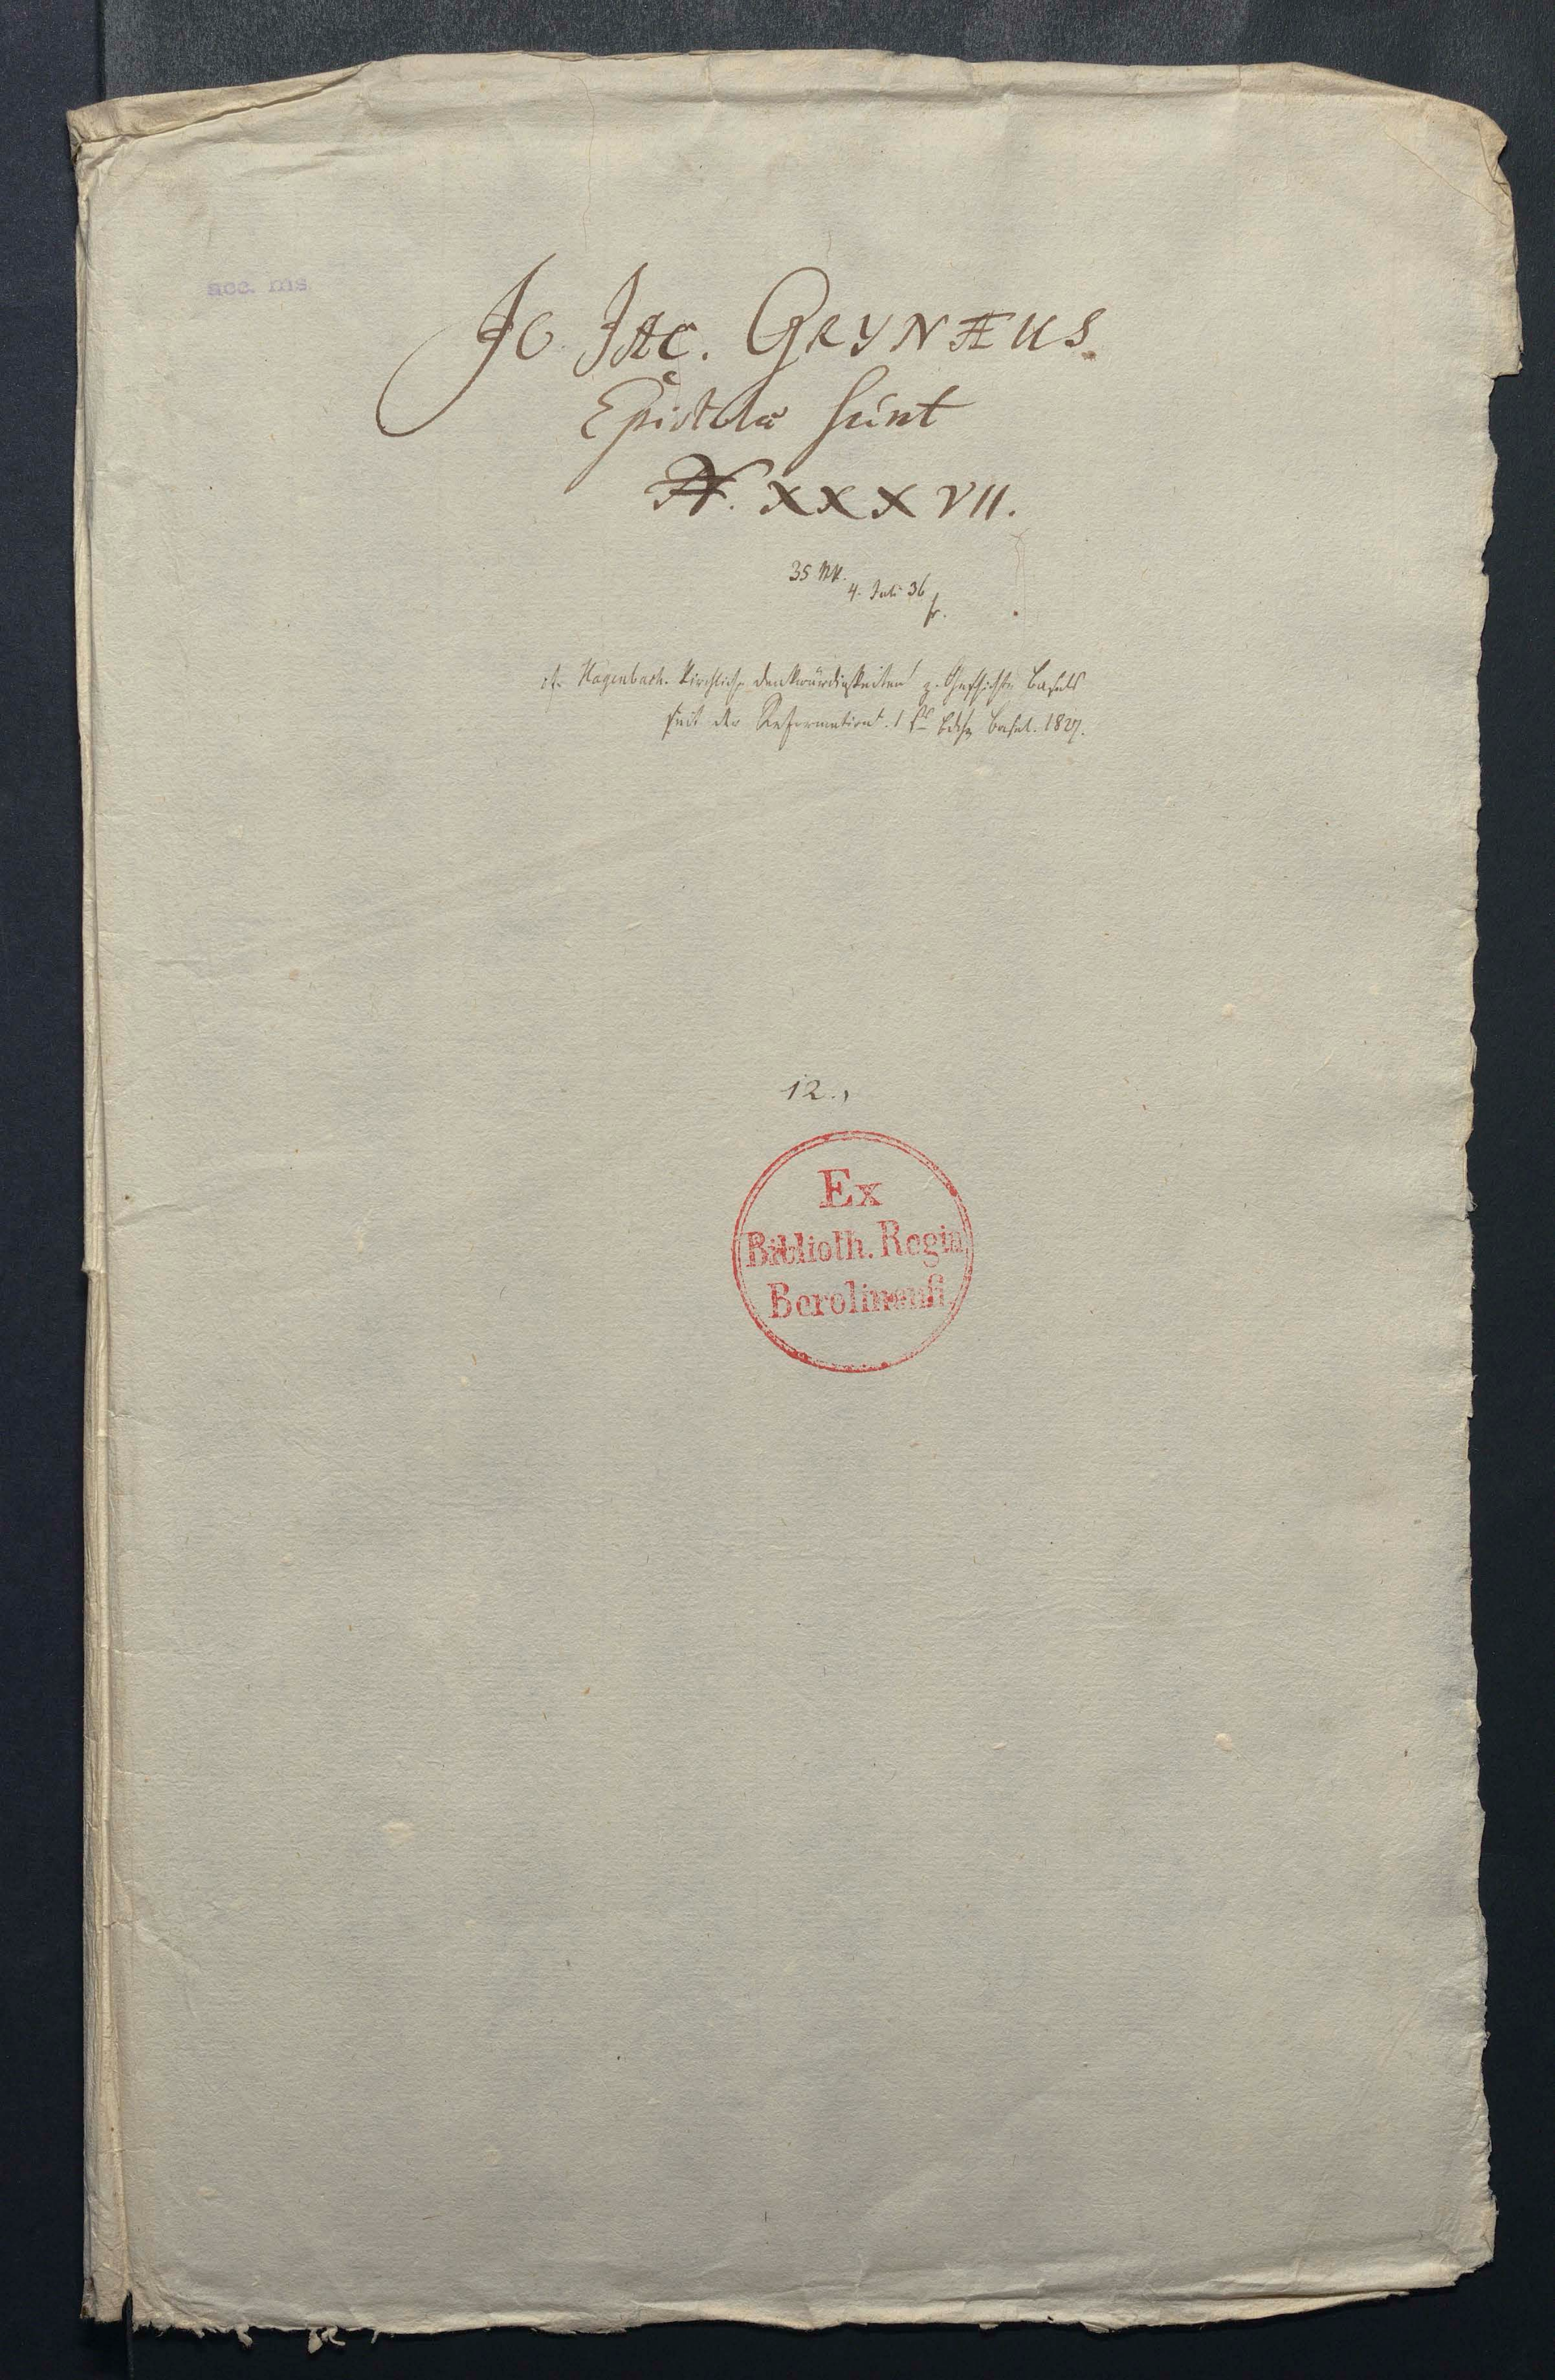 acc. ms
Jo Jac. GRYNÆUS
Epistolæ sunt
N. XXXVII.
35 NN.
4. Juli 36
fr.
cf. Hagenbach. Kirchliche Denkwürdigkeiten z. Geschichte Basels
seit der Reformation. 1 Bdch Basel. 1827.
12.,
Ex
Biblioth. Regia
Berolinenſi.